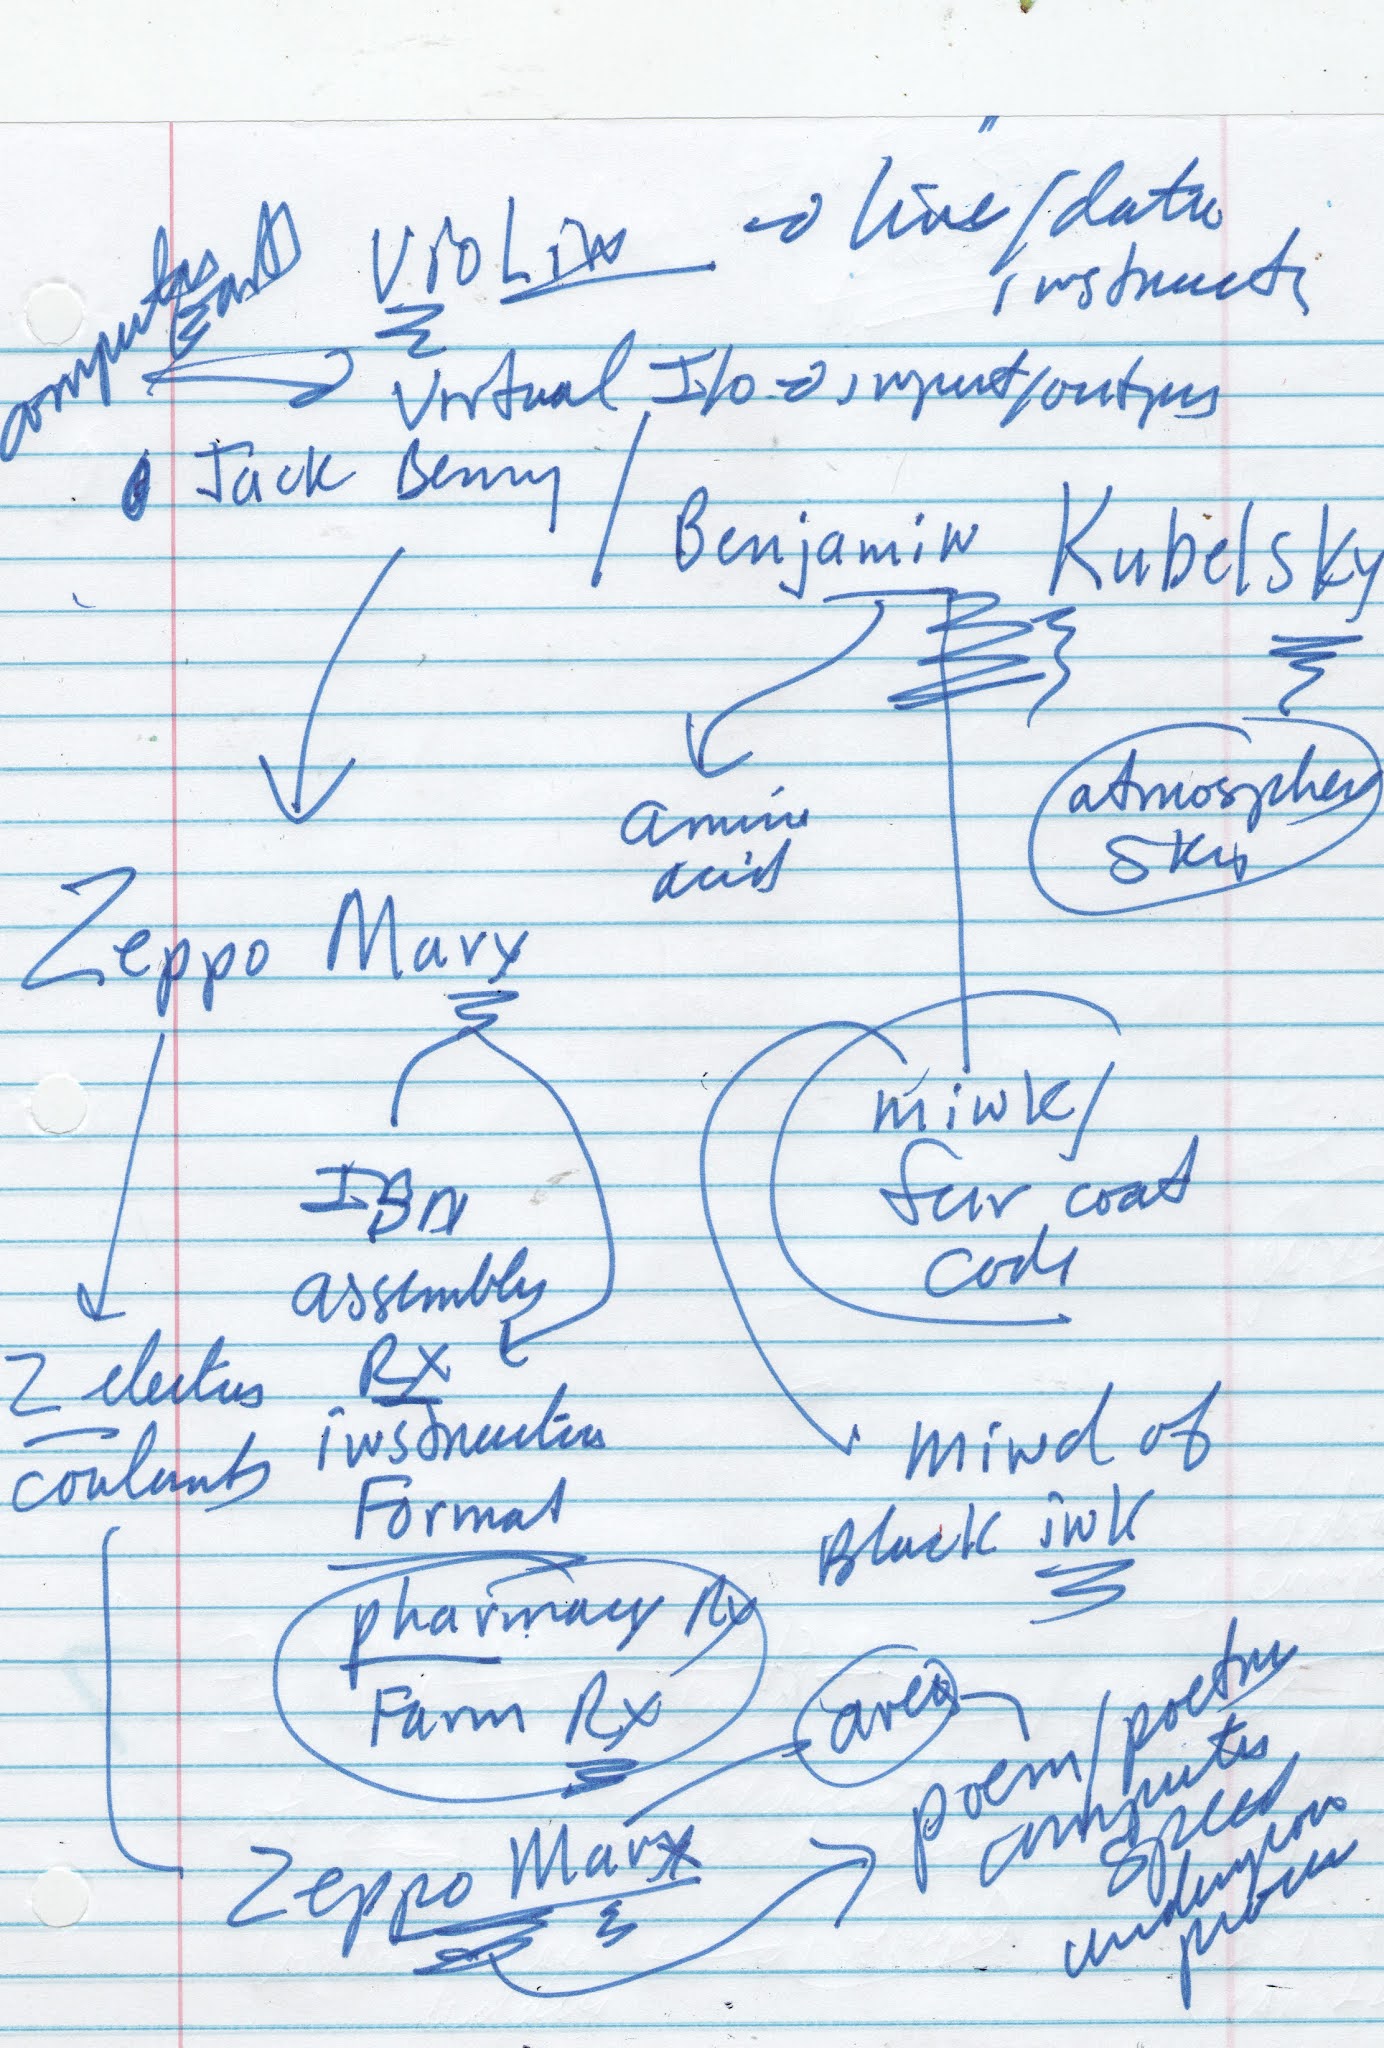 VioLin → line/data
instructi
computer
Virtual I/O → input/output
Jack Benny /
Benjamin Kubelsky
amino
acid
atmosphere
sky
Zeppo Marx
mink/
fur coat
code
IBM
assembly
RX
instruction
Format
Z electus
coulants
mind of
Black ink
pharmacy Rx
Farm Rx
area
poem/poetry
computer
speed
Zeppo Marx